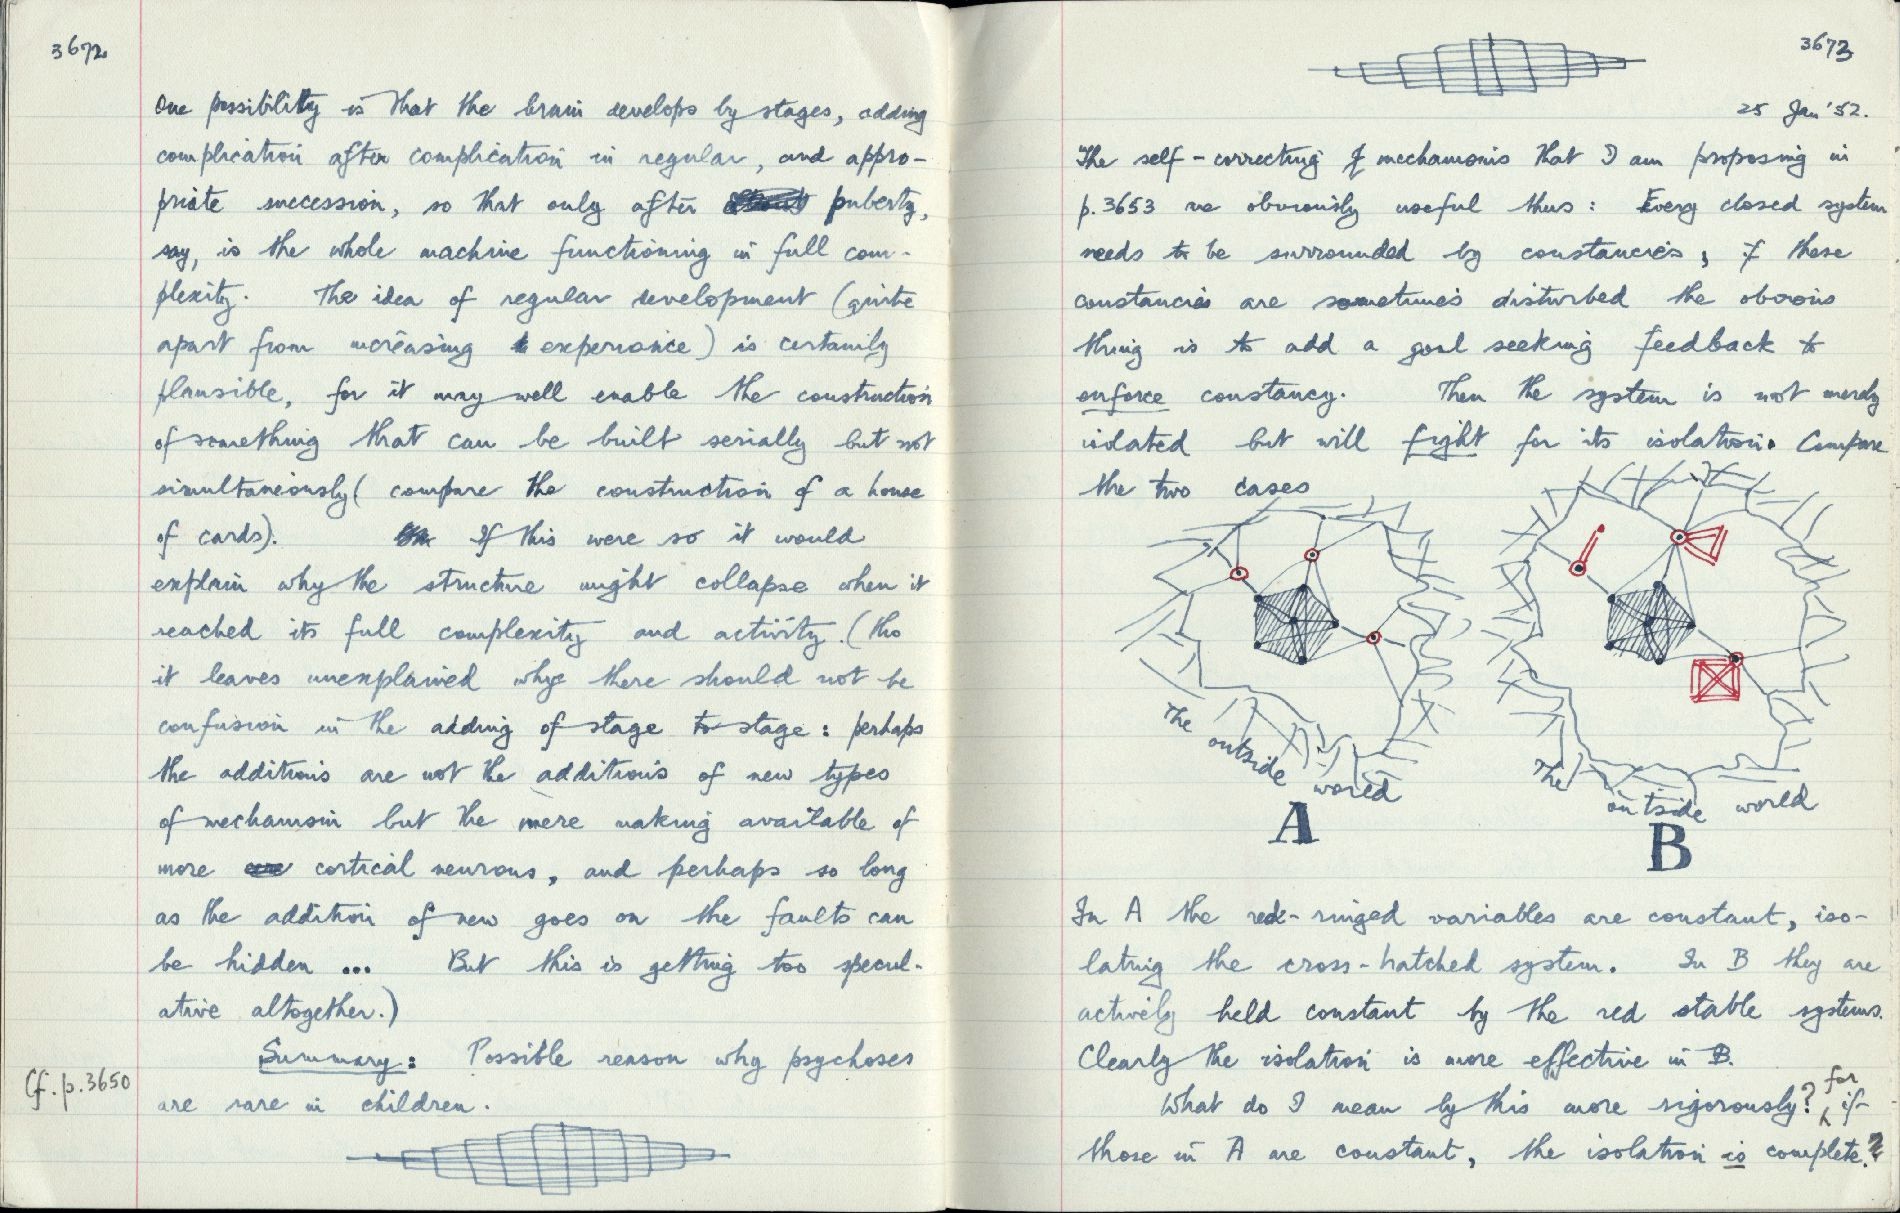 3672
One possibility is that the brain develops by stages, adding
complication after complication in regular, and appro-
priate succession, so that only after puberty,
say, is the whole machine functioning in full com-
plexity. The idea of regular development (quite
apart from increasing experience) is certainly
plausible, for it may well enable the construction
of something that can be built serially but not
simultaneously (compare the construction of a house
of cards). If this were so it would
explain why the structure might collapse when it
reached its full complexity and activity. (tho
it leaves unexplained why there should not be
confusion in the adding of stage to stage: perhaps
the additions are not the additions of new types
of mechanism but the mere making available of
more cortical neurons, and perhaps so long
as the addition of new goes on the faults can
be hidden ... But this is getting too specul-
ative altogether.)
Summary: Possible reason why psychoses
are rare in children.
Cf. p.3650
3673
25 Jan '52.
The self-correcting mechanisms that I am proposing in
p.3653 are obviously useful thus: Every closed system
needs to be surrounded by constancies; if these
constancies are sometimes disturbed the obvious
thing is to add a goal seeking feedback to
enforce constancy. Then the system is not merely
isolated but will fight for its isolation. Compare
the two cases
The outside world
A
The outside world
B
In A the red-ringed variables are constant, iso-
lating the cross-hatched system. In B they are
actively held constant by the red stable systems.
Clearly the isolation is more effective in B.
What do I mean by this more rigorously? for if
those in A are constant, the isolation is complete.?